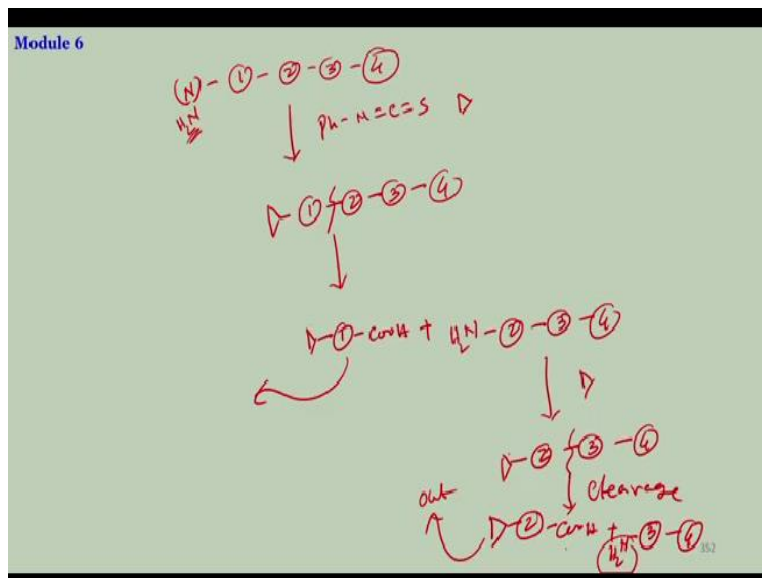 Module 6
(N) - ① - ② - ③ - ④
H2N
Ph - N = C = S ▷
▷ - ① - ② - ③ - ④
▷ - ① - COOH + H2N - ② - ③ - ④
▷
▷ - ② - ③ - ④
Cleavage
out
▷ - ② - COOH + H2N - ③ - ④
352